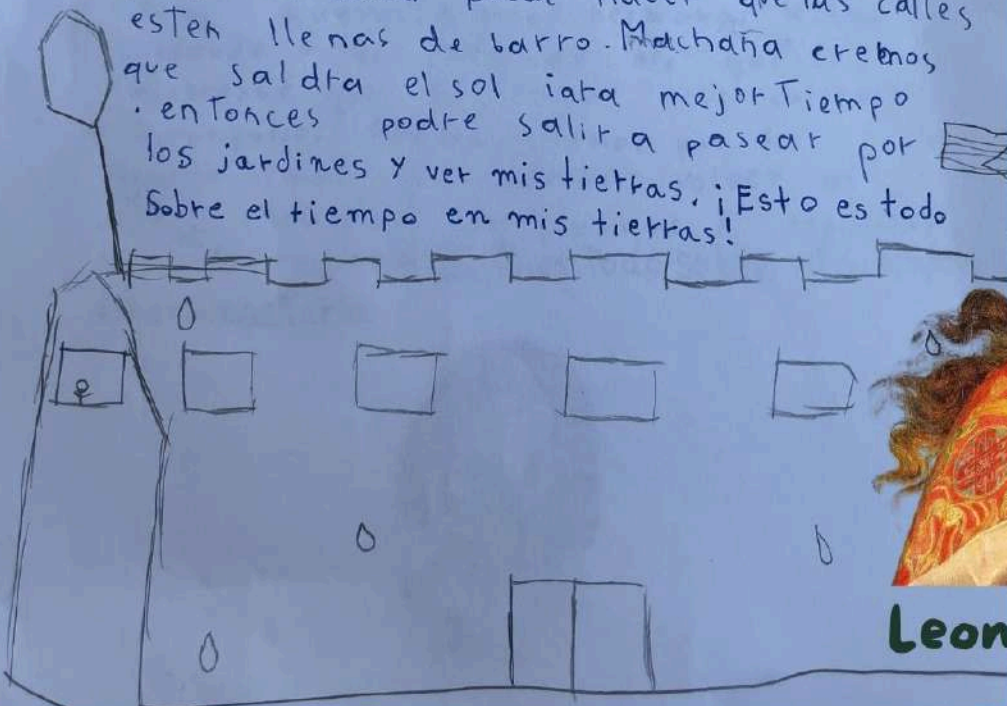 que las calles
esten llenas de barro. Machaña creemos
que saldra el sol iara mejor Tiempo
. entonces podre salir a pasear por
los jardines y ver mis tierras. ¡Esto es todo
Sobre el tiempo en mis tierras!
Leon